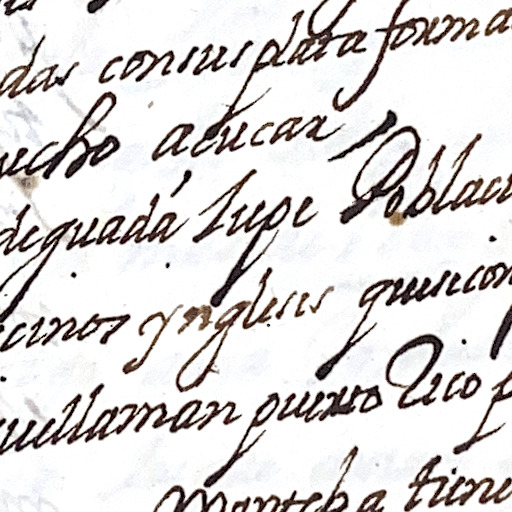 das consus plataforma
ucho açucar,
deguadá lupe Poblaci
cinos ynglesis quesecon
quellaman puerto Rico p
Manteha tiene